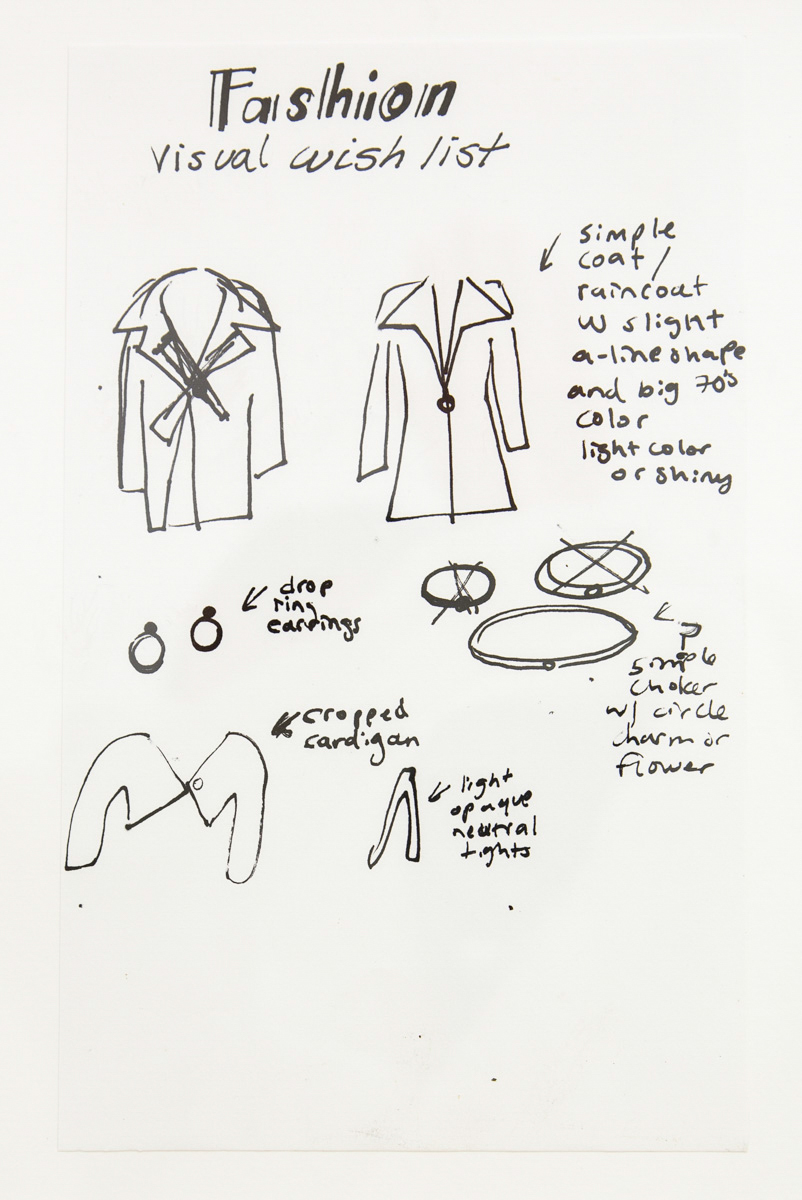 Fashion
visual wish list
simple
coat/
raincoat
w slight
a-line shape
and big 70's
color
light color
or shiny
drop
ring
earrings
simple
choker
w/ circle
charm or
flower
cropped
cardigan
light
opaque
neutral
tights